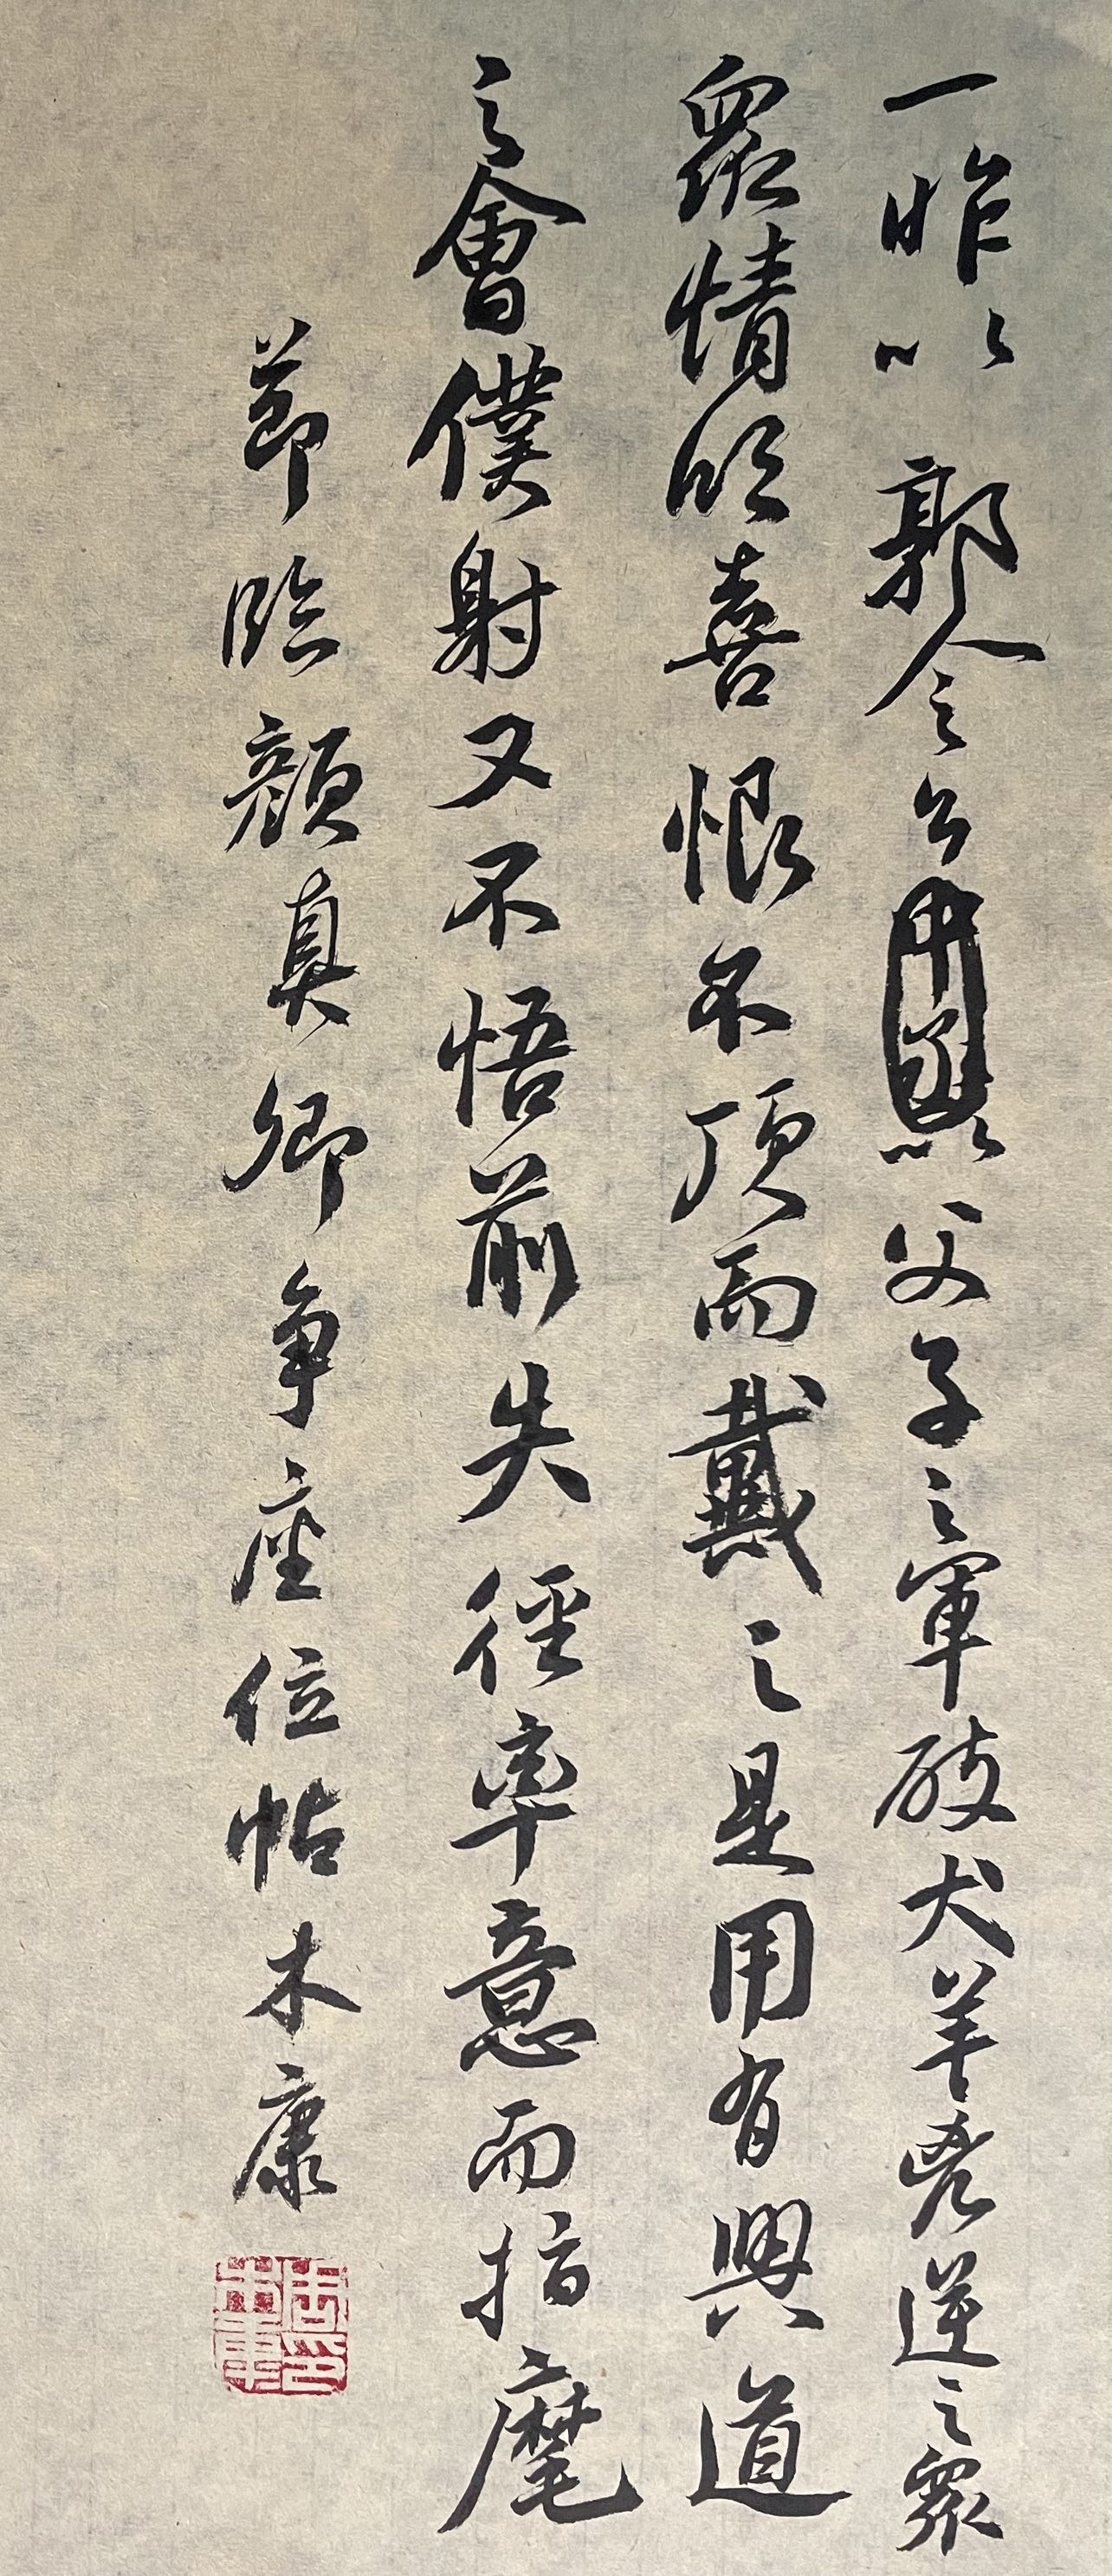 一昨以郭令公以父子之軍破犬羊兇逆之衆
衆情欣喜恨不頂而戴之是用有興道
之會僕射又不悟前失徑率意而指麾
節臨顏真卿争座位帖木康